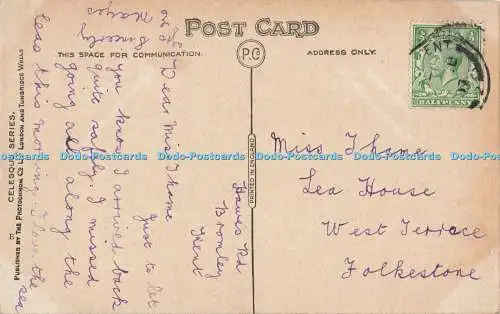 POST CARD
THIS SPACE FOR COMMUNICATION.
ADDRESS ONLY.
P.C.
HALFPENNY
CELESQUE SERIES.
PUBLISHED BY THE PHOTOCHROM CO LTD LONDON AND TUNBRIDGE WELLS
PRINTED IN ENGLAND
B
Hawes Rd
Bromley
Kent
Dear Miss Thame
Just to let
you know I arrived back
quite safely. I missed
going all along the
sea this morning. I love the sea
Yrs
Sincerely
Miss Thame
Lea House
West Terrace
Folkestone
Dodo-Postcards Dodo-Postcards Dodo-Postcards Dodo-Postcards Dodo-Postcards